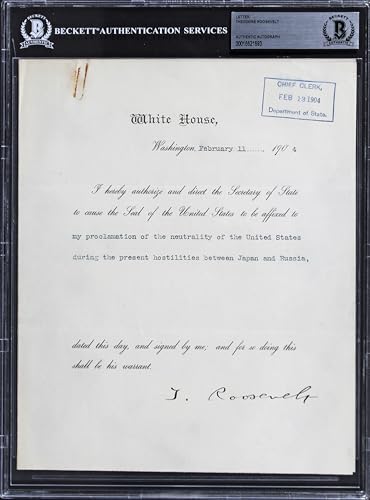 BECKETT AUTHENTICATION SERVICES
LETTER
THEODORE ROOSEVELT
AUTHENTIC AUTOGRAPH
BECKETT
CHIEF CLERK,
FEB 13 1904
Department of State.
White House,
Washington, February 11......, 1904
I hereby authorize and direct the Secretary of State
to cause the Seal of the United States to be affixed to
my proclamation of the neutrality of the United States
during the present hostilities between Japan and Russia,
dated this day, and signed by me; and for so doing this
shall be his warrant.
T. Roosevelt